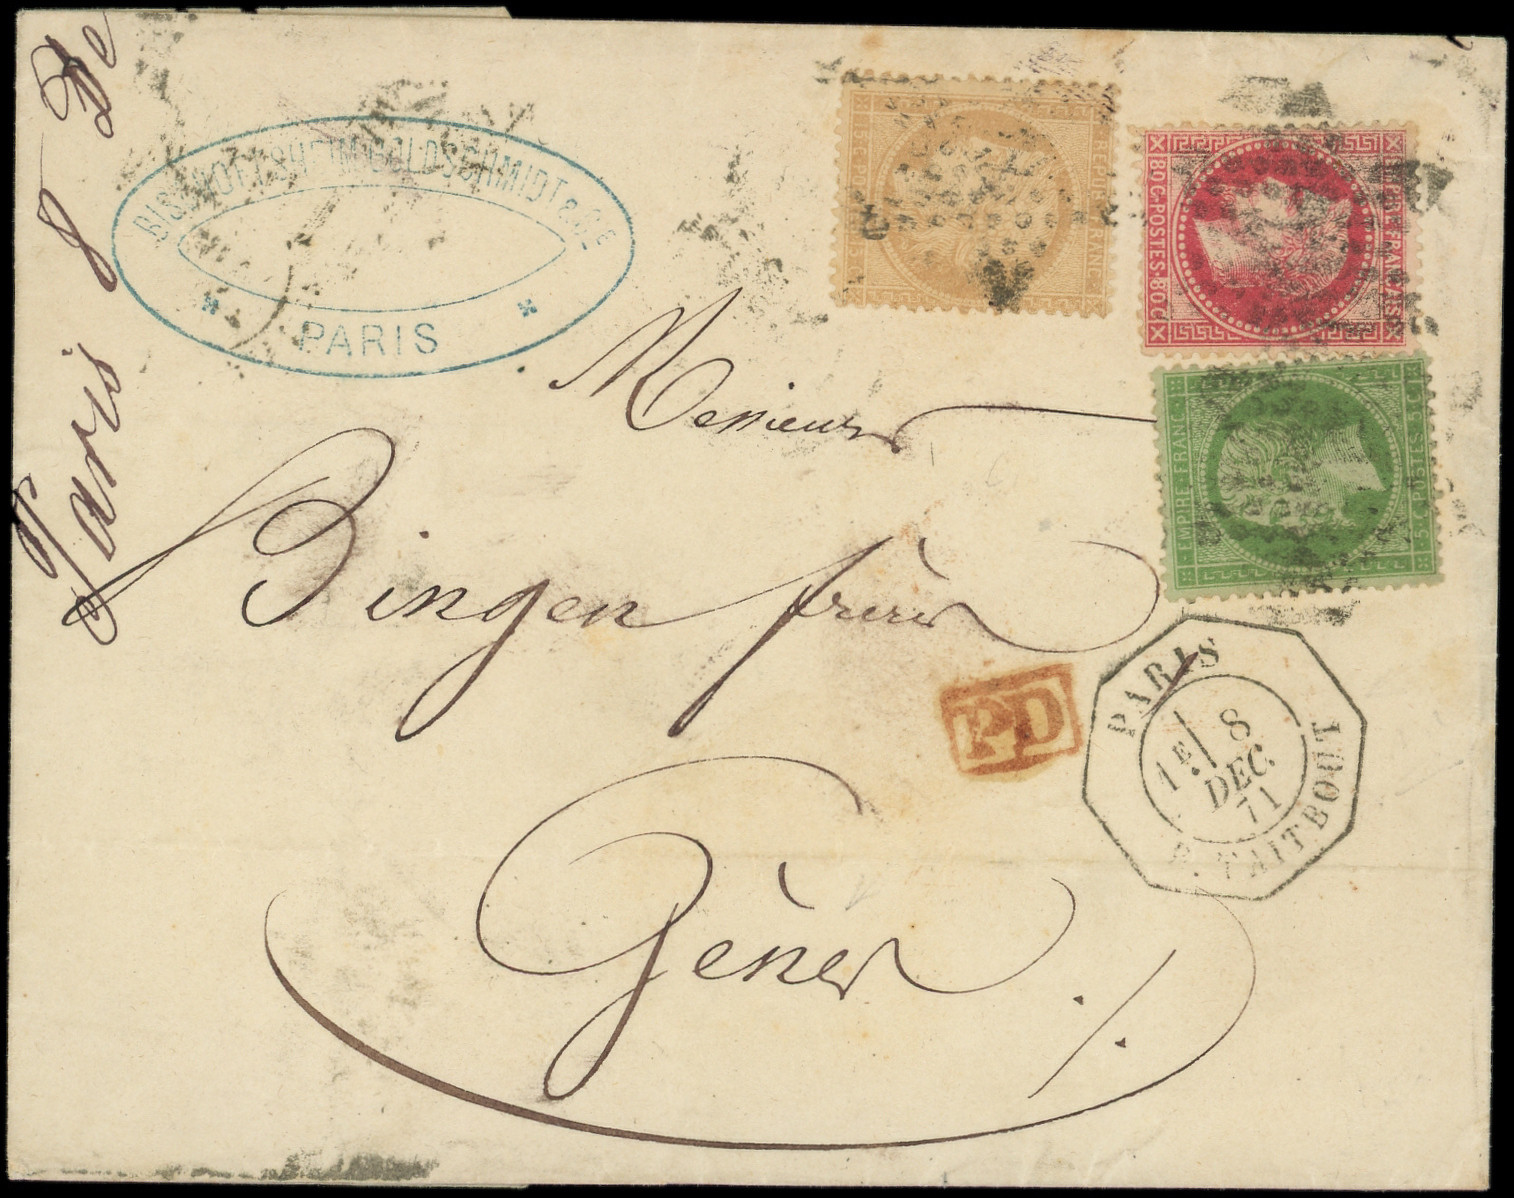 Paris 8 De
BISCHOFFSHEIM GOLDSCHMIDT & CIE
PARIS
15 C. POSTES 15 C.
REPUB. FRANC.
EMPIRE FRANÇAIS
80 C · POSTES · 80 C
EMPIRE FRANC.
5 C. POSTES 5 C.
Messieurs
Bingen frères
Gênes
P.D
PARIS
1E
8
DEC.
71
R. TAITBOUT